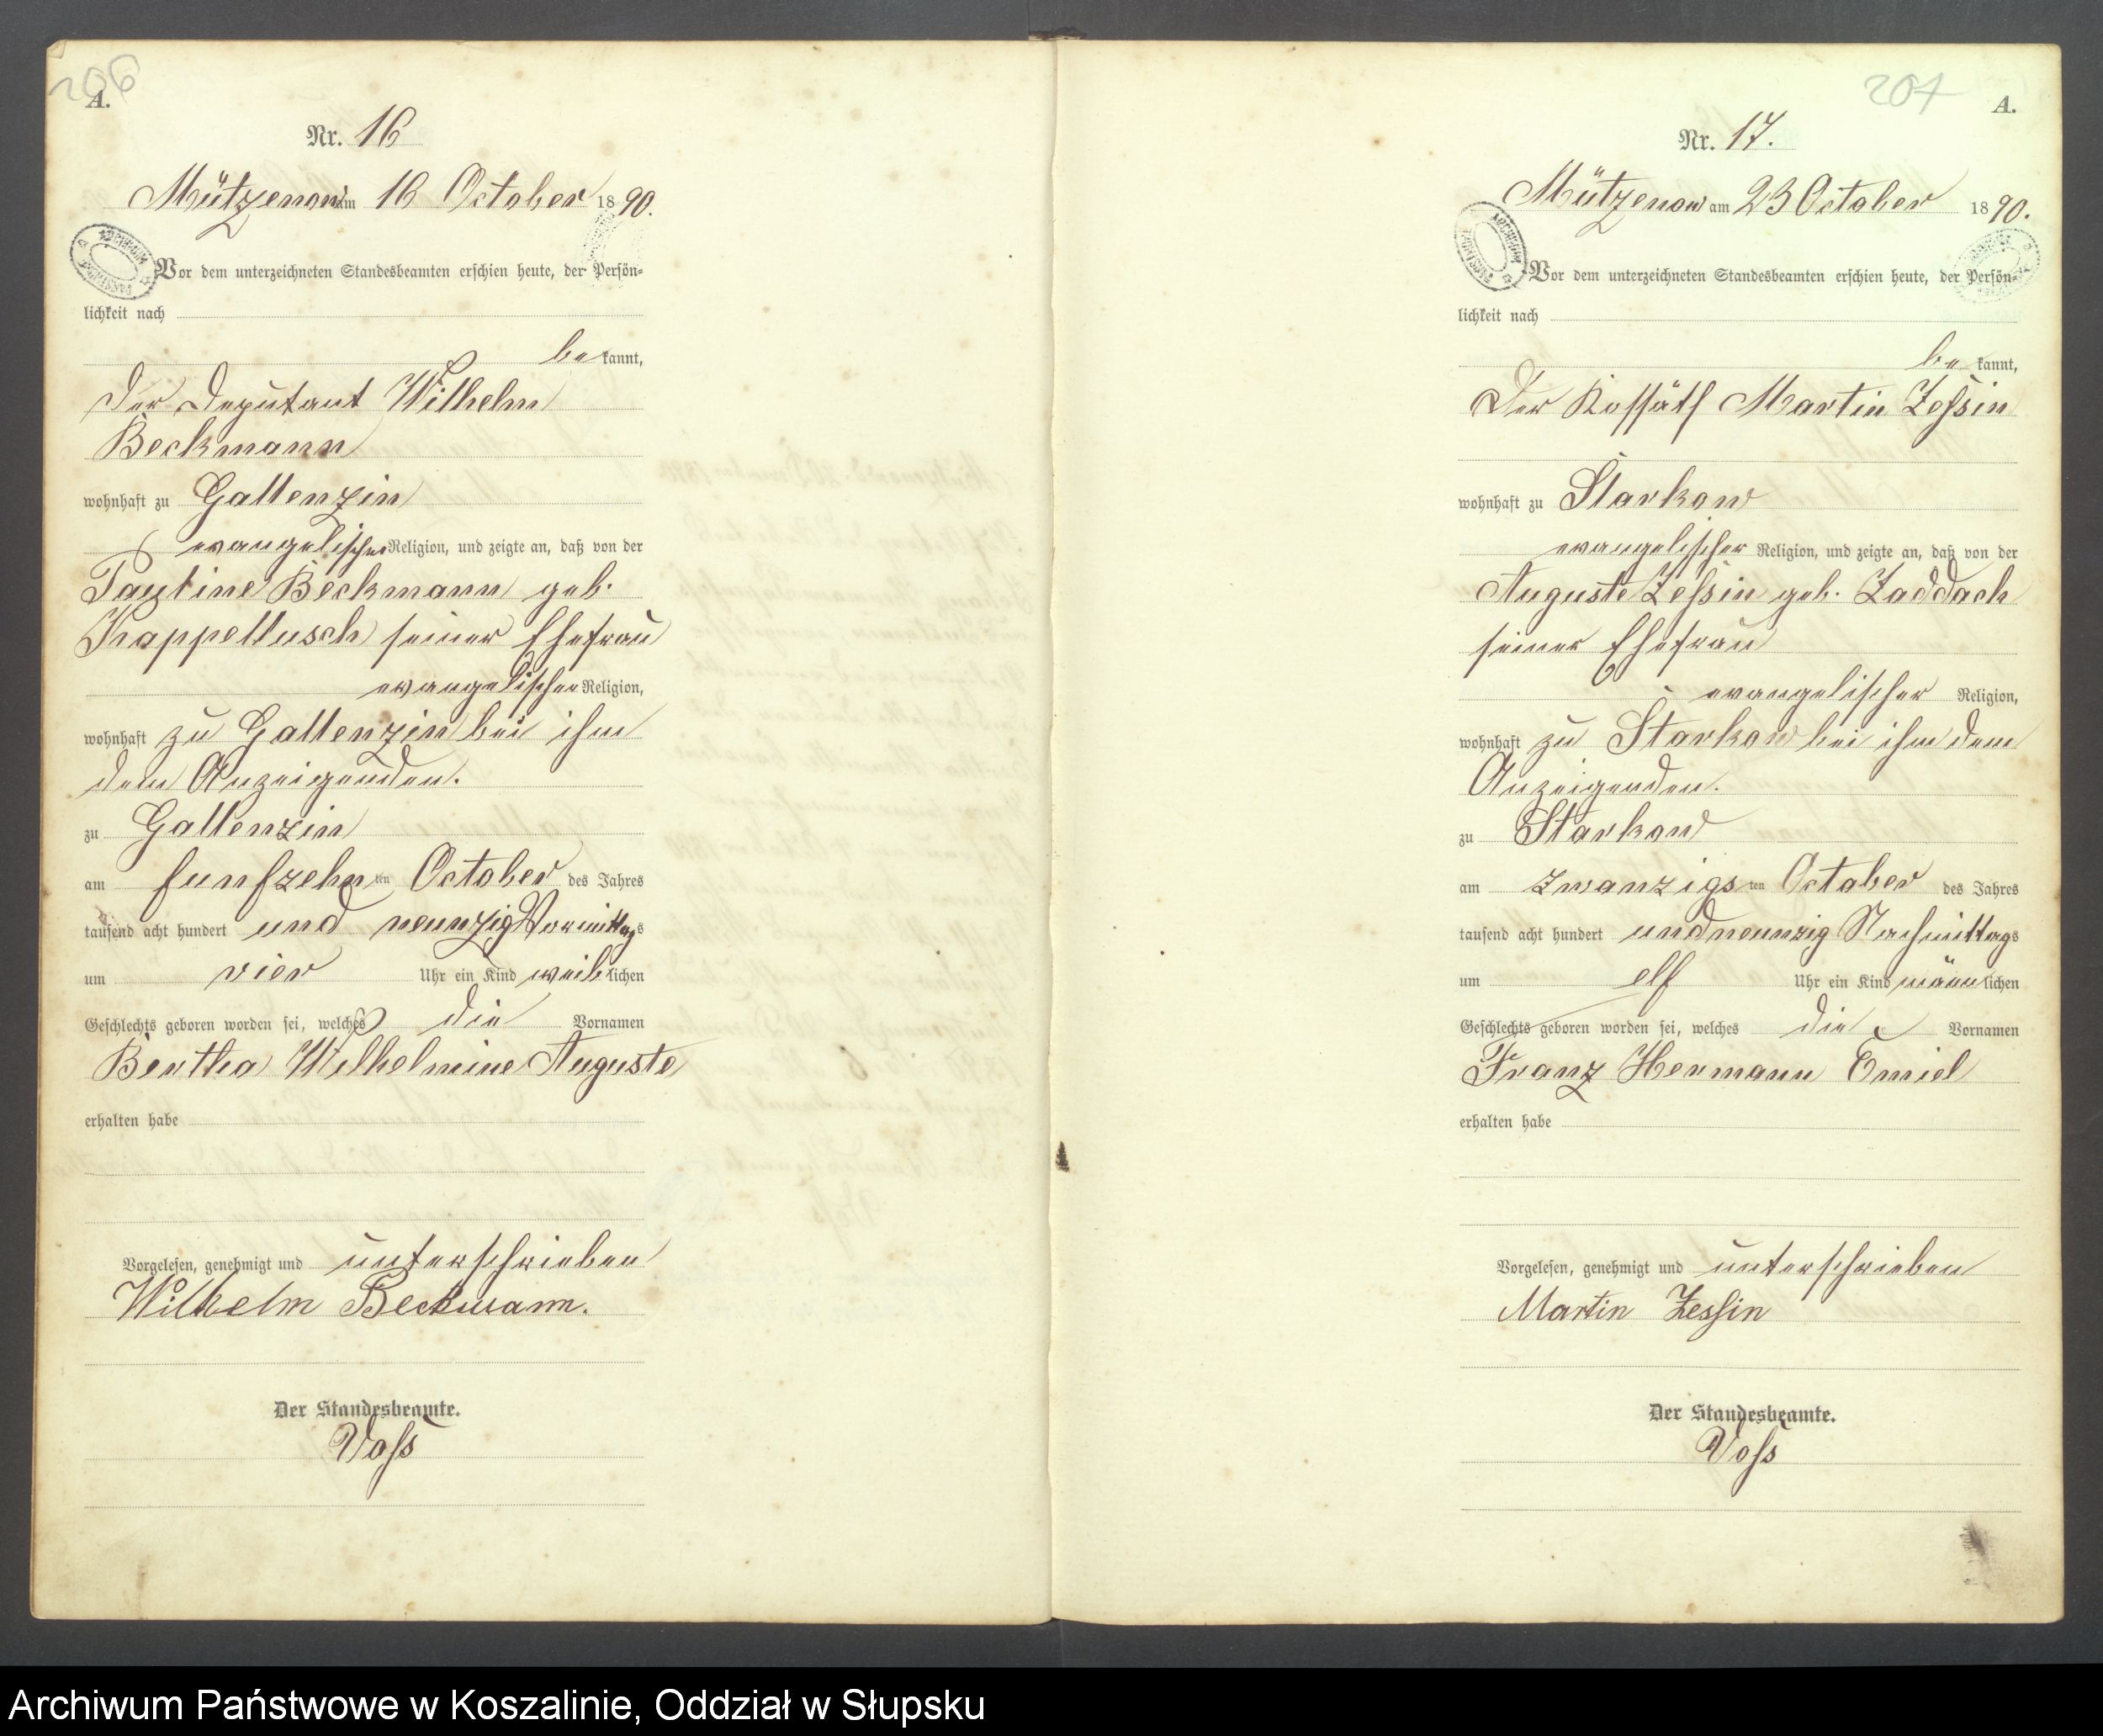 206
A.
Nr. 16
Mützenow am 16 October 1890.
Vor dem unterzeichneten Standesbeamten erschien heute, der Persön-
lichkeit nach
be kannt,
der Deputant Wilhelm
Beckmann
wohnhaft zu Gallenzin
evangelischer Religion, und zeigte an, daß von der
Pauline Beckmann geb.
Kappellusch seiner Ehefrau
evangelischer Religion,
wohnhaft zu Gallenzin bei ihm
dem Anzeigenden.
zu Gallenzin
am funfzehn ten October des Jahres
tausend acht hundert und neunzig Vormittags
um vier Uhr ein Kind weib lichen
Geschlechts geboren worden sei, welches die Vornamen
Bertha Wilhelmine Auguste
erhalten habe
Vorgelesen, genehmigt und unterschrieben
Wilhelm Beckmann.
Der Standesbeamte.
Voß
207
A.
Nr. 17.
Mützenow am 23 October 1890.
Vor dem unterzeichneten Standesbeamten erschien heute, der Persön-
lichkeit nach
be kannt,
Der Kossäth Martin Zessin
wohnhaft zu Starkow
evangelischer Religion, und zeigte an, daß von der
Auguste Zessin geb. Zaddach
seiner Ehefrau
evangelischer Religion,
wohnhaft zu Starkow bei ihm dem
Anzeigenden.
zu Starkow
am zwanzigs ten October des Jahres
tausend acht hundert und neunzig Nachmittags
um elf Uhr ein Kind männ lichen
Geschlechts geboren worden sei, welches die Vornamen
Franz Hermann Emiel
erhalten habe
Vorgelesen, genehmigt und unterschrieben
Martin Zessin
Der Standesbeamte.
Voß
Archiwum Państwowe w Koszalinie, Oddział w Słupsku